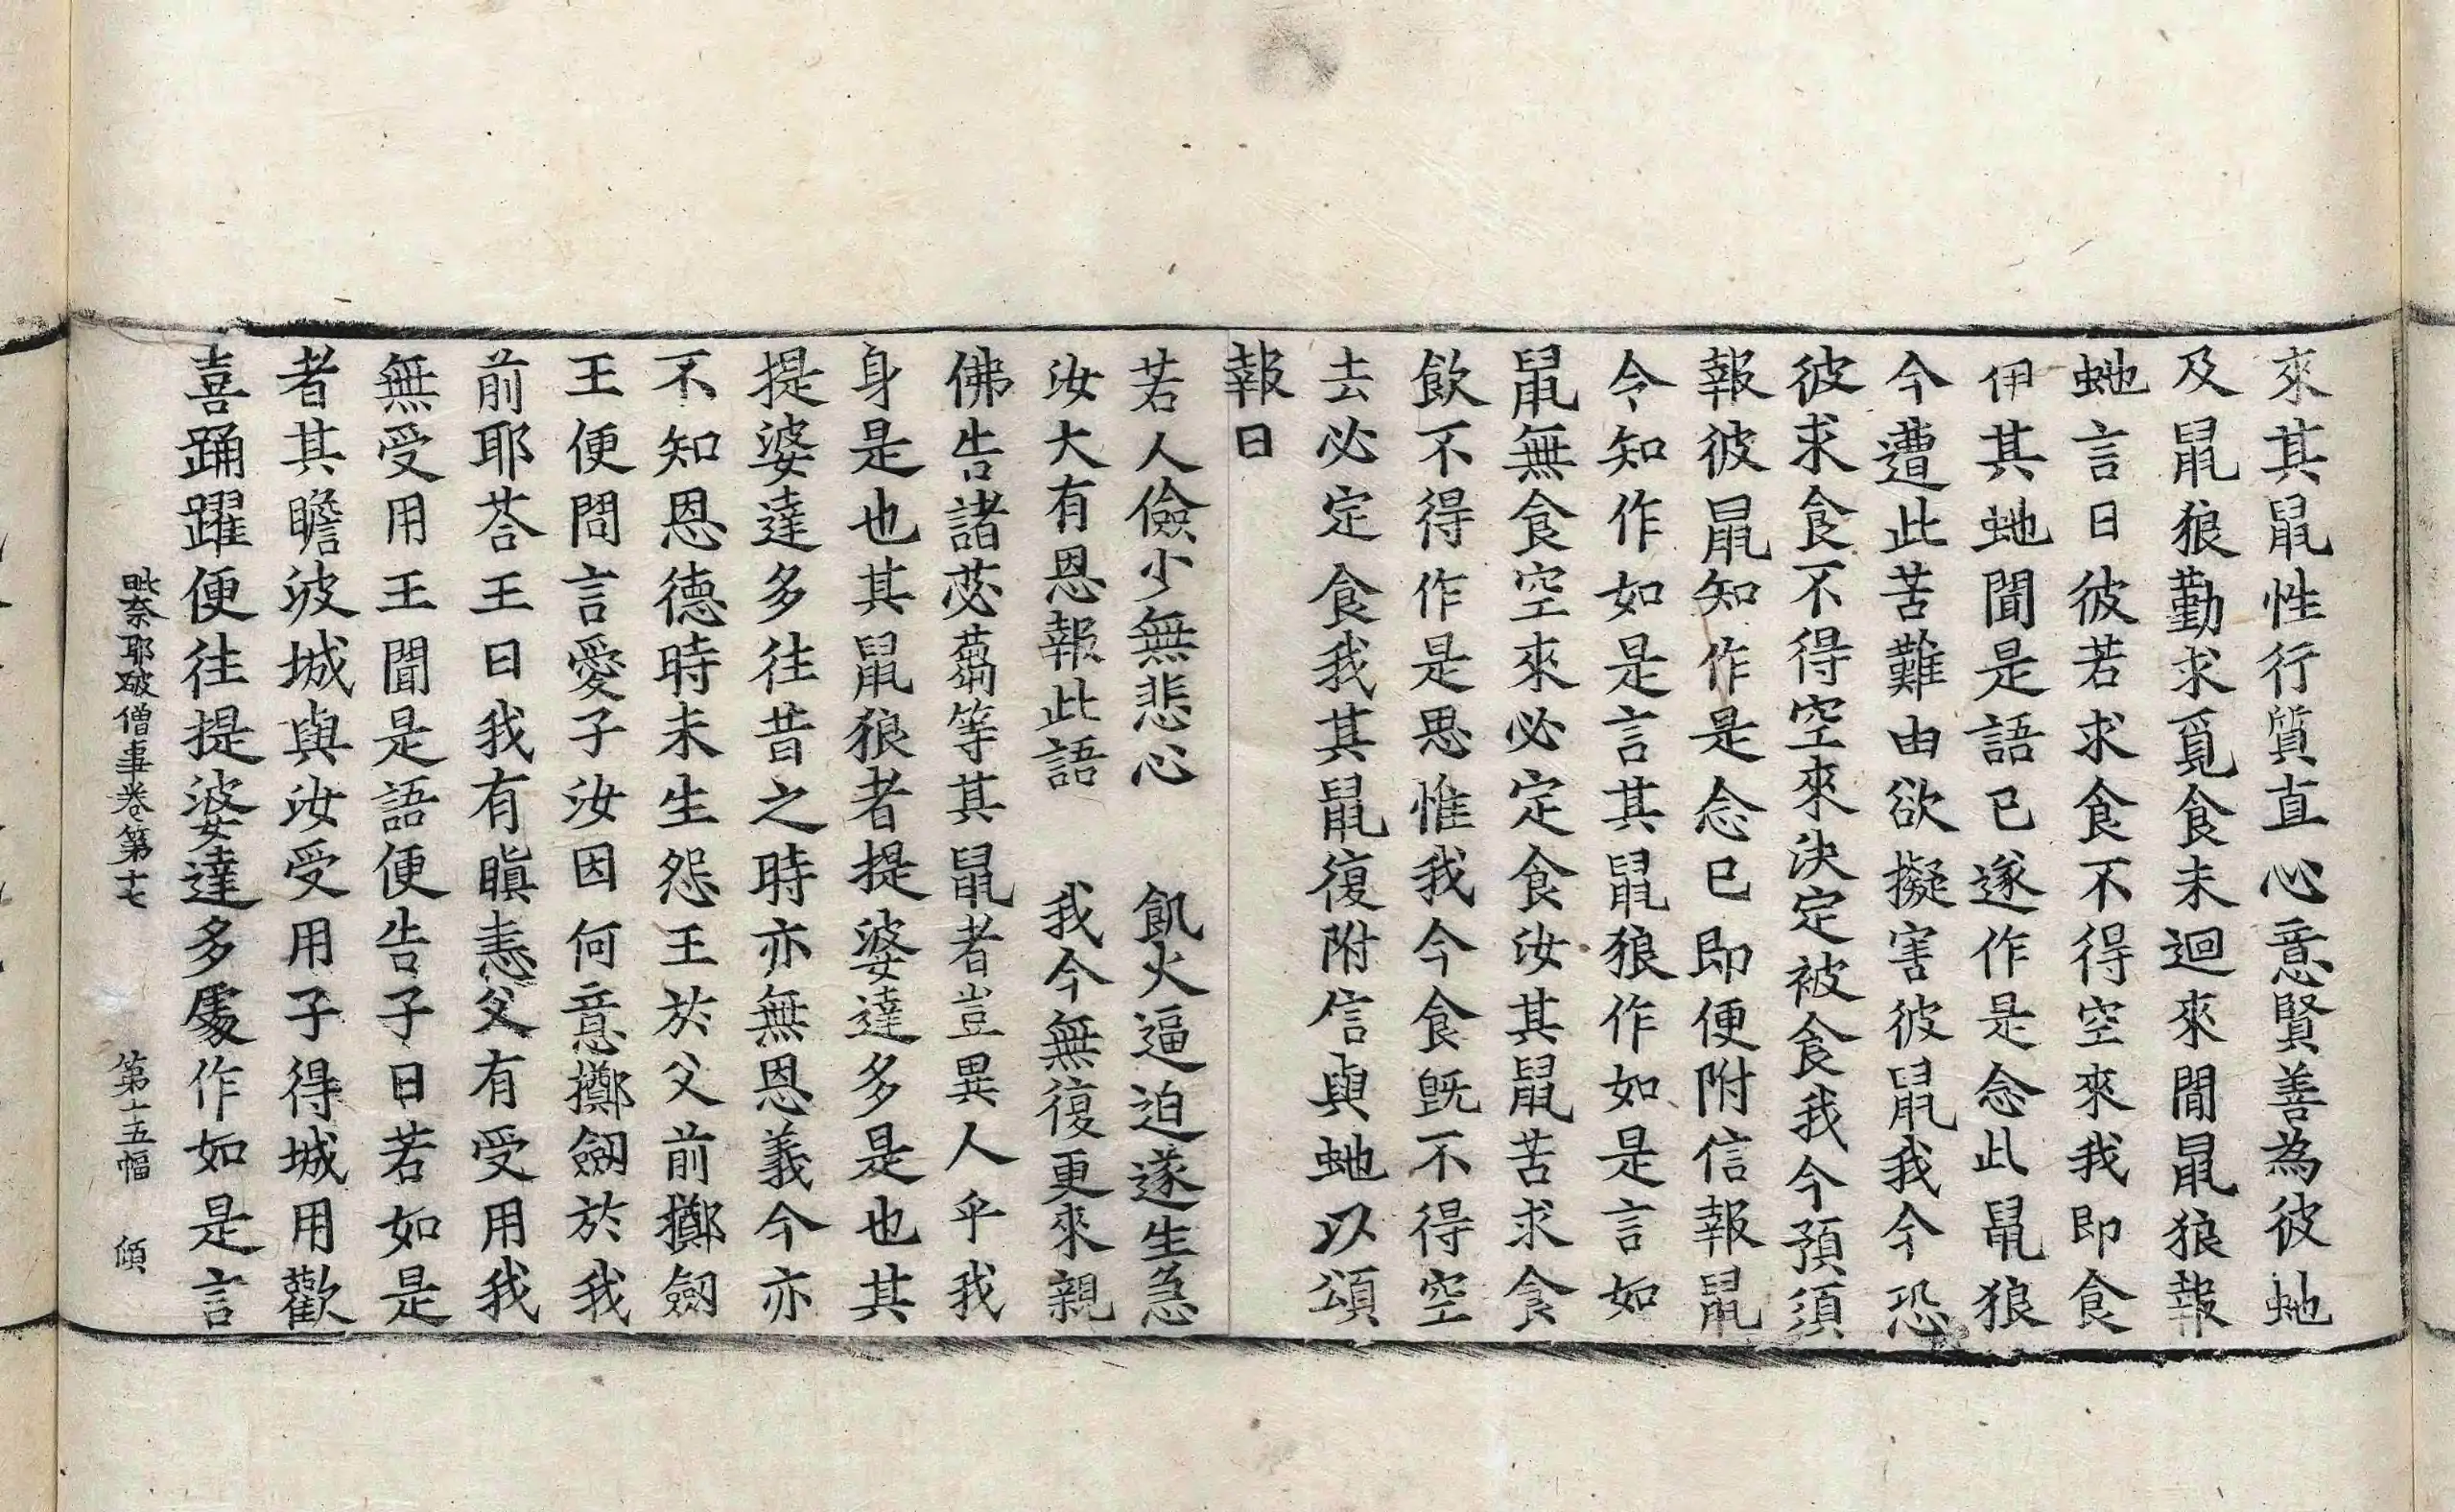 來其鼠性行質直心意賢善為彼虵
及鼠狼勤求覓食未迴來閒鼠狼報
虵言曰彼若求食不得空來我即食
伊其虵聞是語已遂作是念此鼠狼
今遭此苦難由欲擬害彼鼠我今恐
彼求食不得空來決定被食我今預須
報彼鼠知作是念已即便附信報鼠
令知作如是言其鼠狼作如是言如
鼠無食空來必定食汝其鼠苦求食
飲不得作是思惟我今食既不得空
去必定食我其鼠復附信與虵以頌
報曰
若人儉少無悲心 飢火逼迫遂生急
汝大有恩報此語 我今無復更來親
佛告諸苾蒭等其鼠者豈異人乎我
身是也其鼠狼者提婆達多是也其
提婆達多往昔之時亦無恩義今亦
不知恩德時未生怨王於父前擲劒
王便問言愛子汝因何意擲劒於我
前耶荅王曰我有瞋恚父有受用我
無受用王聞是語便告子曰若如是
者其瞻波城與汝受用子得城用歡
喜踊躍便往提婆達多處作如是言
毗奈耶破僧事卷第十七 第十五幅 頎